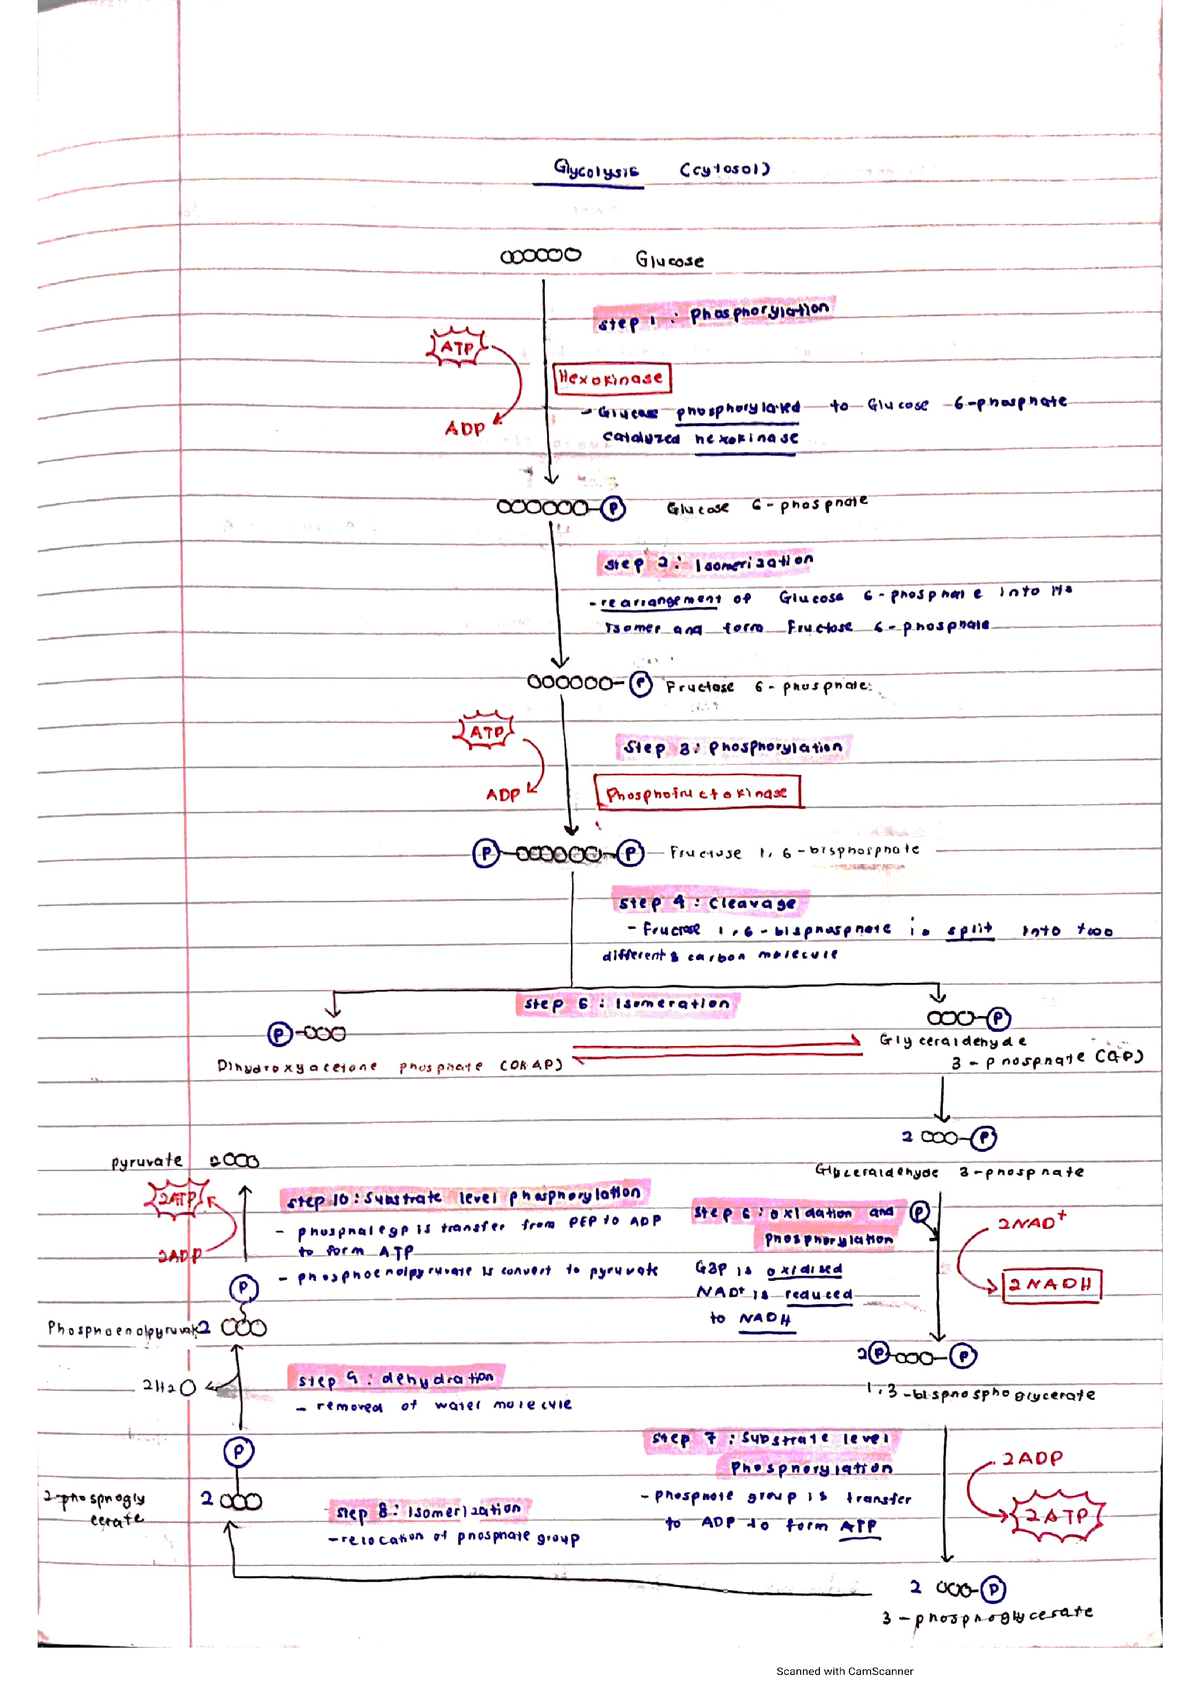 Glycolysis (cytosol)
Glucose
Step 1 : Phosphorylation
ATP
Hexokinase
- Glucose phosphorylated to Glucose 6-phosphate
ADP
catalyzed hexokinase
P
Glucose 6-phosphate
Step 2 : Isomerization
- rearrangement of Glucose 6-phosphate into its
Isomer and form Fructose 6-phosphate
P Fructose 6-phosphate
ATP
Step 3 : Phosphorylation
ADP
Phosphofructokinase
P P Fructose 1,6-bisphosphate
Step 4 : Cleavage
- Fructose 1,6-bisphosphate is split into two
different 3 carbon molecule
Step 5 : Isomeration
P
P
Glyceraldehyde
3-phosphate (GP)
Dihydroxyacetone phosphate (DHAP)
2 P
Glyceraldehyde 3-phosphate
pyruvate 2
2ATP
2ADP
Step 10 : Substrate level phosphorylation
- phosphate gp is transfer from PEP to ADP
to form ATP
- phosphoenolpyruvate is convert to pyruvate
Step 6 : oxidation and
phosphorylation
P
2NAD+
2NADH
Gap is oxidised
NAD+ is reduced
to NADH
P
Phosphoenolpyruvate 2
2 P P
1,3-bisphosphoglycerate
Step 9 : dehydration
- removed of water molecule
2H2O
P
2
2-phosphogly
cerate
Step 7 : Substrate level
Phosphorylation
- phosphate group is transfer
to ADP to form ATP
2ADP
2ATP
Step 8 : Isomerization
- relocation of phosphate group
2 P
3-phosphoglycerate
Scanned with CamScanner